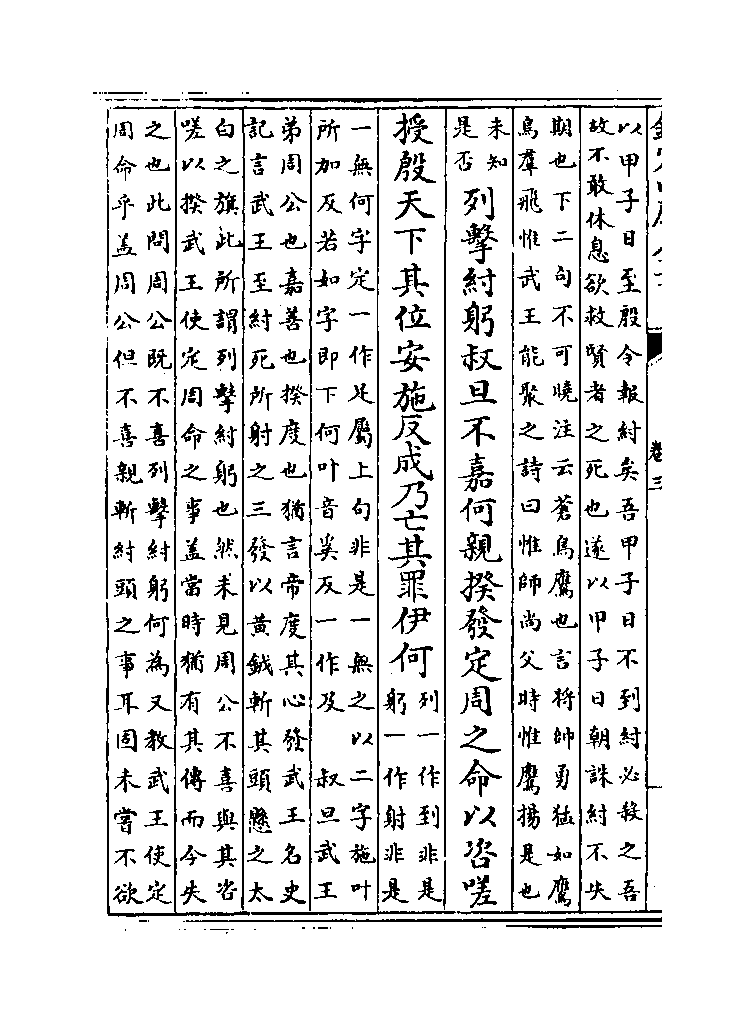 卷三
以甲子日至殷令報紂矣吾甲子日不到紂必殺之吾
故不敢休息欲救賢者之死也遂以甲子日朝誅紂不失
期也下二句不可曉注云蒼鳥鷹也言將帥勇猛如鷹
鳥羣飛惟武王能聚之詩曰惟師尚父時惟鷹揚是也
未知
是否
列擊紂躬叔旦不嘉何親揆發定周之命以咨嗟
授殷天下其位安施反成乃亡其罪伊何
列一作到非是
躬一作射非是
一無何字定一作足屬上句非是一無之以二字施叶
所加反若如字即下何叶音奚反一作及 叔旦武王
弟周公也嘉善也揆度也猶言帝度其心發武王名史
記言武王至紂死所射之三發以黃鉞斬其頭懸之太
白之旗此所謂列擊紂躬也然未見周公不喜與其咨
嗟以揆武王使定周命之事蓋當時猶有其傳而今失
之也此問周公既不喜列擊紂躬何為又教武王使定
周命乎蓋周公但不喜親斬紂頭之事耳固未嘗不欲